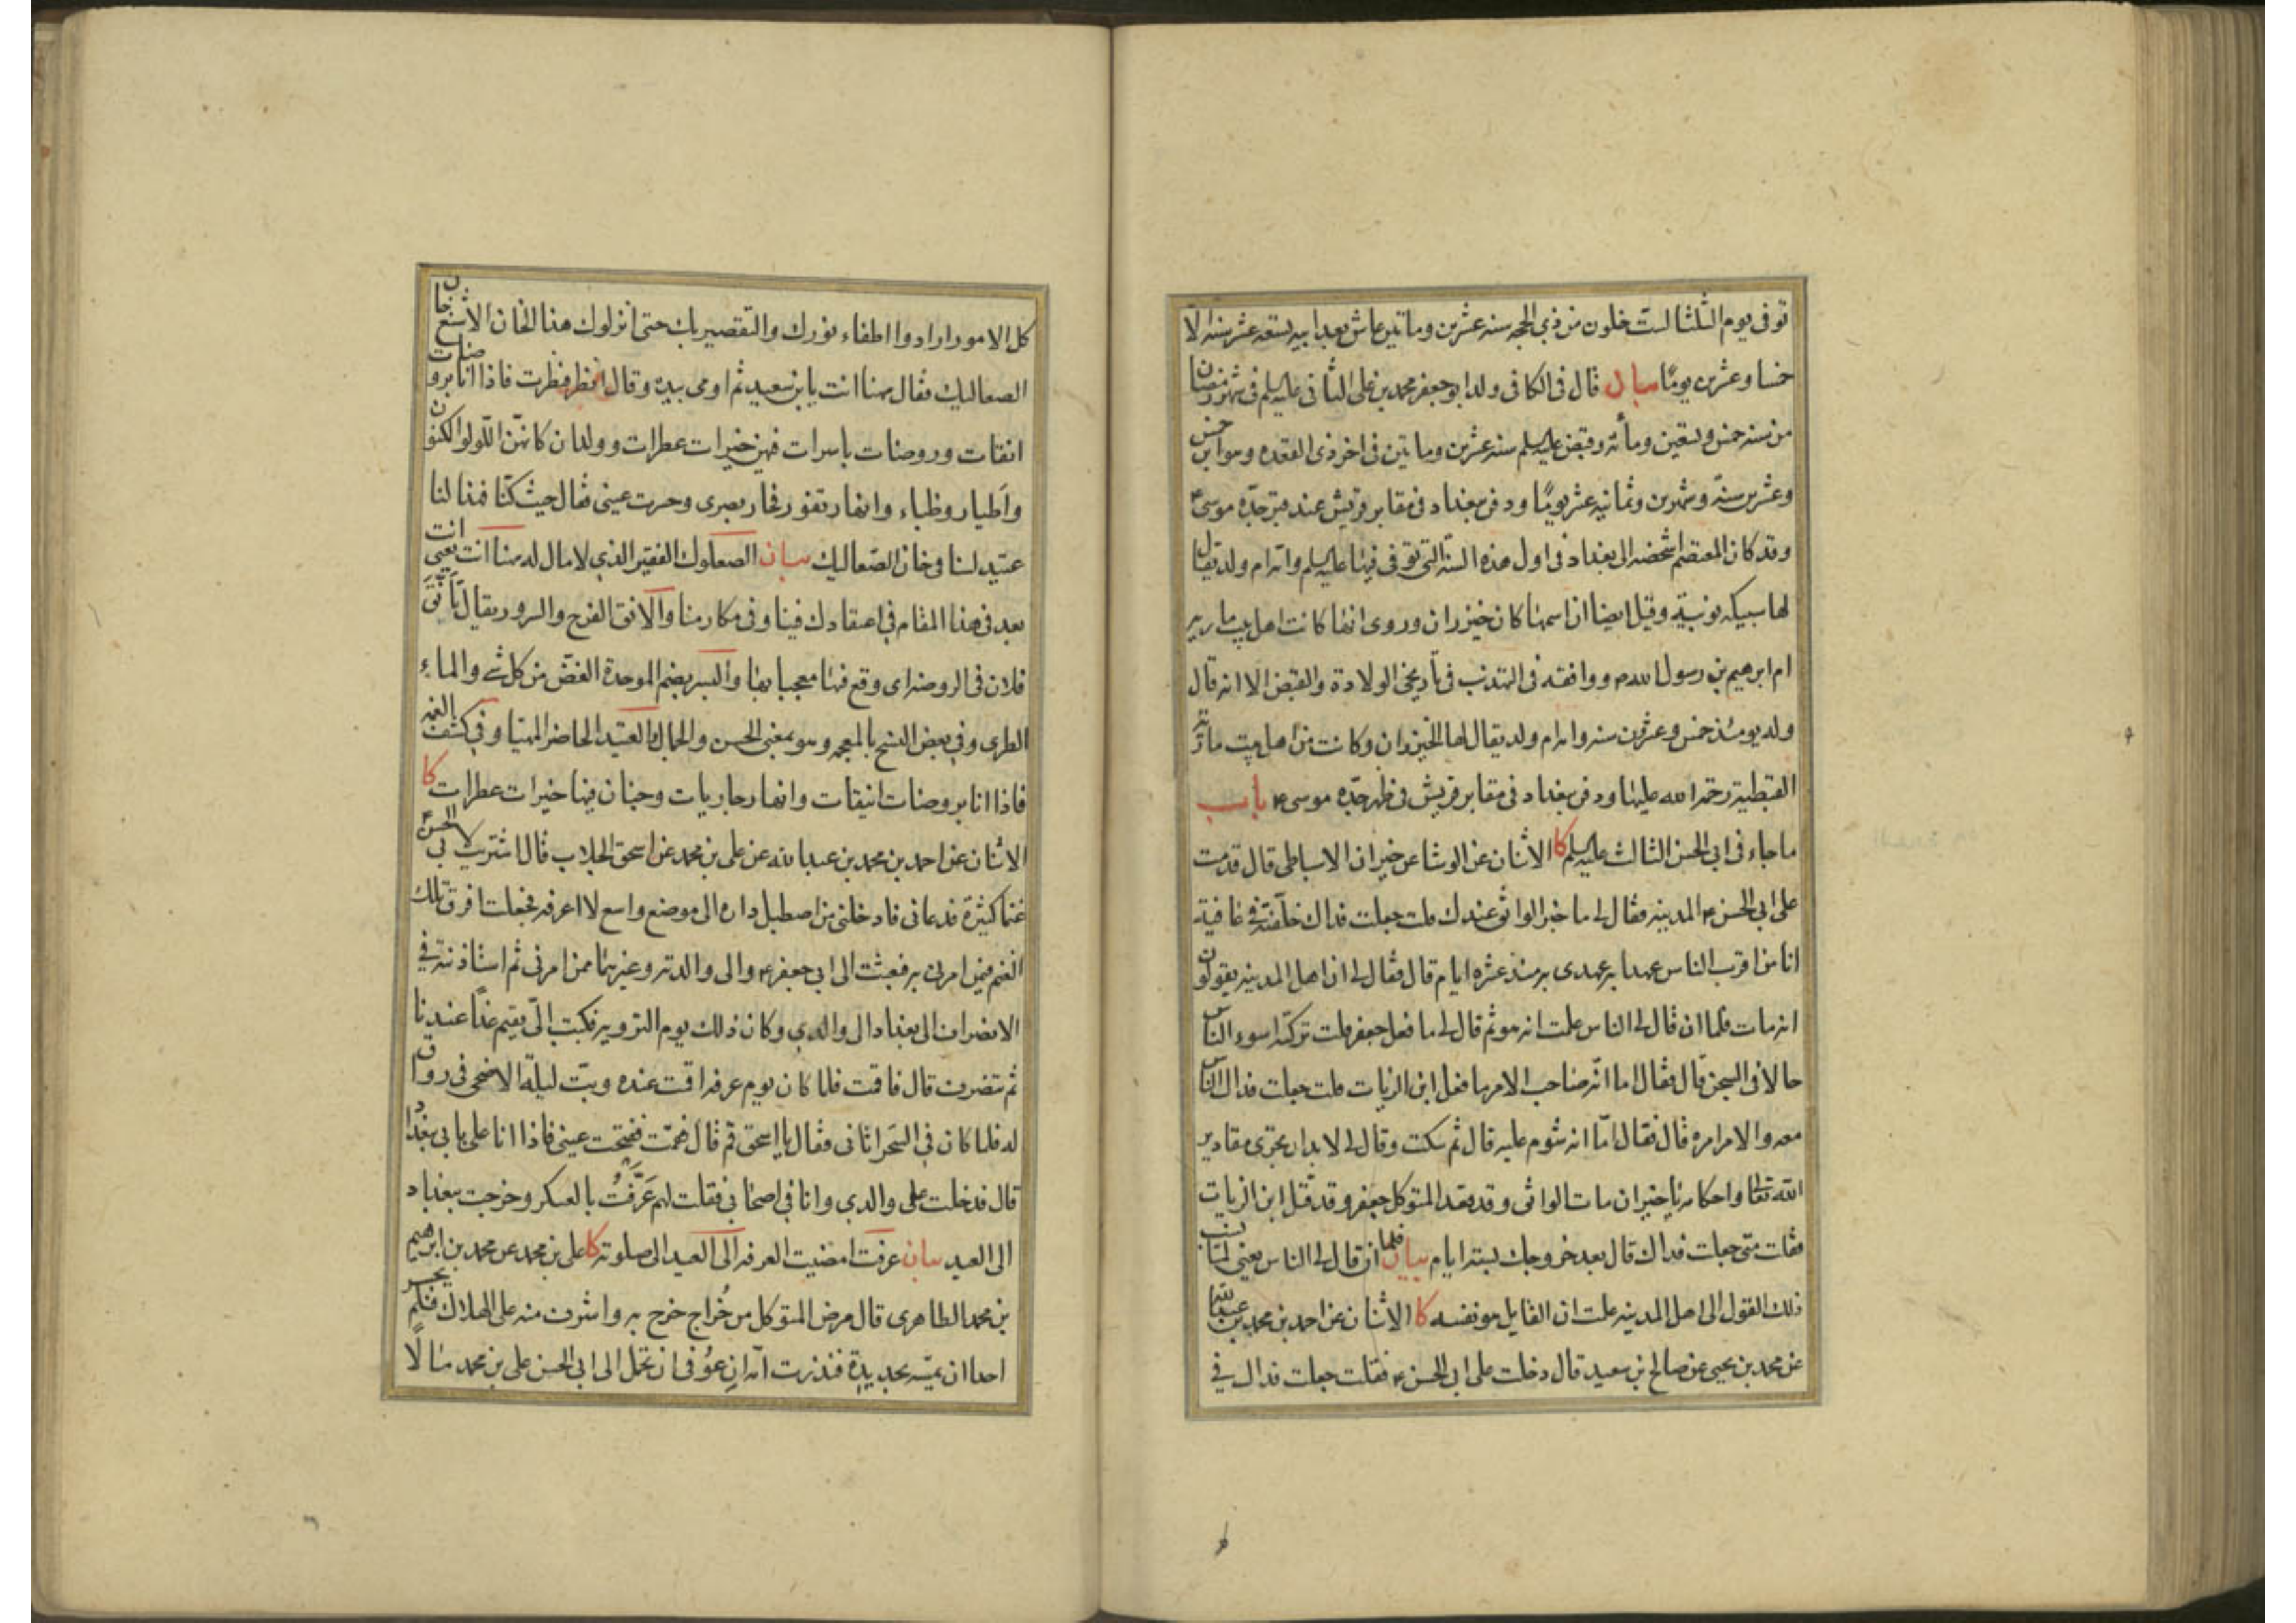 توفى يوم الثلثا لست خلون من ذي الحجه سنه عشرين وماتين عاش بعد ابيه تسعه عشر سنه الا
خمسا وعشرين يومًا بيان قال فى الكافى ولد ابو جعفر محمد بن على الثانى عليه السلم فى شهر رمضان
من سنه خمس وتسعين ومأئه وقبض عليه السلم سنه عشرين وماتين فى اخر ذى القعده وهو ابن خمس
وعشرين سنةً وشهرين وثمانيه عشر يومًا ودفن ببغداد فى مقابر قريش عند قبر جدّه موسى ع
وقد كان المعتصم اشخصه الى بغداد فى اول هذه السنة التى توفى فيها عليه السلم وامه ام ولد يقال
لها سبيكه نوبية وقيل ايضا ان اسمها كان خيزران وروى انها كانت اهل بيت ماريه
ام ابرهيم بن رسول الله ص ووافقه فى التهذيب فى تأريخى الولادة والقبض الا انه قال
وله يومئذ خمس وعشرون سنه وامه ام ولد يقال لها الخيزران وكانت من اهل بيت مارية
القبطية رحمة الله عليها ودفن ببغداد فى مقابر قريش فى ظهر جدّه موسى ع باب
ما جاء فى ابى الحسن الثالث عليه السلم كا الاثنان عن الوشا عن خيران الاسباطى قال قدمت
على ابى الحسن ع المدينه فقال لى ما خبر الواثق عندك قلت جعلت فداك خلّفته فى عافية
انا من اقرب الناس عهدا به عهدى به منذ عشره ايام قال فقال لى ان اهل المدينه يقولون
انه مات فلما ان قال لى الناس علمت انه هو ثم قال لى ما فعل جعفر قلت تركته اسوء الناس
حالا فى السجن قال فقال اما انّه صاحب الامر ما فعل ابن الزيات قلت جعلت فداك الناس
معه والامر امره قال فقال امّا انه شوم عليه قال ثم سكت وقال لى لا بد ان تجرى مقادير
الله تعالى واحكامه يا خيران مات الواثق وقد قعد المتوكل جعفر وقد قتل ابن الزيات
فقلت متى جعلت فداك قال بعد خروجك بستة ايام بيان فلما ان قال لى الناس يعنى لما نسب
ذلك القول الى اهل المدينه علمت ان القايل هو نفسه كا الاثنان عن احمد بن محمد بن عبد الله
عن محمد بن يحيى عن صالح بن سعيد قال دخلت على ابى الحسن ع فقلت جعلت فداك فى
كل الامور ارادوا اطفاء نورك والتقصير بك حتى انزلوك هذا الخان الاشنع خان
الصعاليك فقال ههنا انت يا بن سعيد ثم اومى بيده وقال انظر فنظرت فاذا انا بروضات
انقات وروضات باسرات فيهن خيرات عطرات وولدان كانهّن اللّولو المكنون
واَطيار وظباء وانهار تفور فحار بصرى وحسرت عينى فقال حيث كنّا فهذا لنا
عتيد لسنا فى خان الصّعاليك بيان الصعلوك الفقير الذي لا مال له ههنا انت يعني انت
بعد فى هذا المقام فى اعتقادك فينا وفى مكارمنا والانق الفرح والسرور يقال تَأنَّقَ
فلان فى الروضه اى وقع فيها معجبا بها والبسر بضم الموحدة الغضّ من كل شئ والماء
الطرى وفى بعض النسخ بالمعجمه وهو بمعنى الحسن والجمال والعتيد الحاضر المهيّا وفى كشف الغمه
فاذا انا بروضات انيقات وانهار جاريات وجنان فيها خيرات عطرات كا
الاثنان عن احمد بن محمد بن عبد الله عن على بن محمد عن اسحق الجلاب قال اشتريت لابى الحسن ع
غنما كثيرة فدعانى فادخلنى من اصطبل داره الى موضع واسع لا اعرفه فجعلت افرق تلك
الغنم فيمن امرنى به فبعثت الى ابى جعفر ع والى والدته وغيرهما ممن امرنى ثم استاذنته فى
الانصراف الى بغداد الى والدي وكان ذلك يوم التروية فكتب الىّ تقيم غدًا عندنا
ثم تنصرف قال فاقمت فلما كان يوم عرفه اقمت عنده وبتّ ليلة الاضحى فى رواق
له فلما كان فى السَحر اتانى فقال يا اسحق قم قال فقمت ففتحت عينى فاذا انا على بابى ببغداد
قال فدخلت على والدي وانا فى اصحابى فقلت لهم عَرَّفْتُ بالعسكر وخرجت ببغداد
الى العيد بيان عرفت امضيت العرفه الى العيد الى صلوته كا على بن محمد عن محمد بن ابرهيم
بن محمد الطاهرى قال مرض المتوكل من خُراج خرج به واشرف منه على الهلاك فلم يجسر
احد ان يمسّه بحديدة فنذرت امّه ان عوُفى ان تحمل الى ابى الحسن على بن محمد مالًا